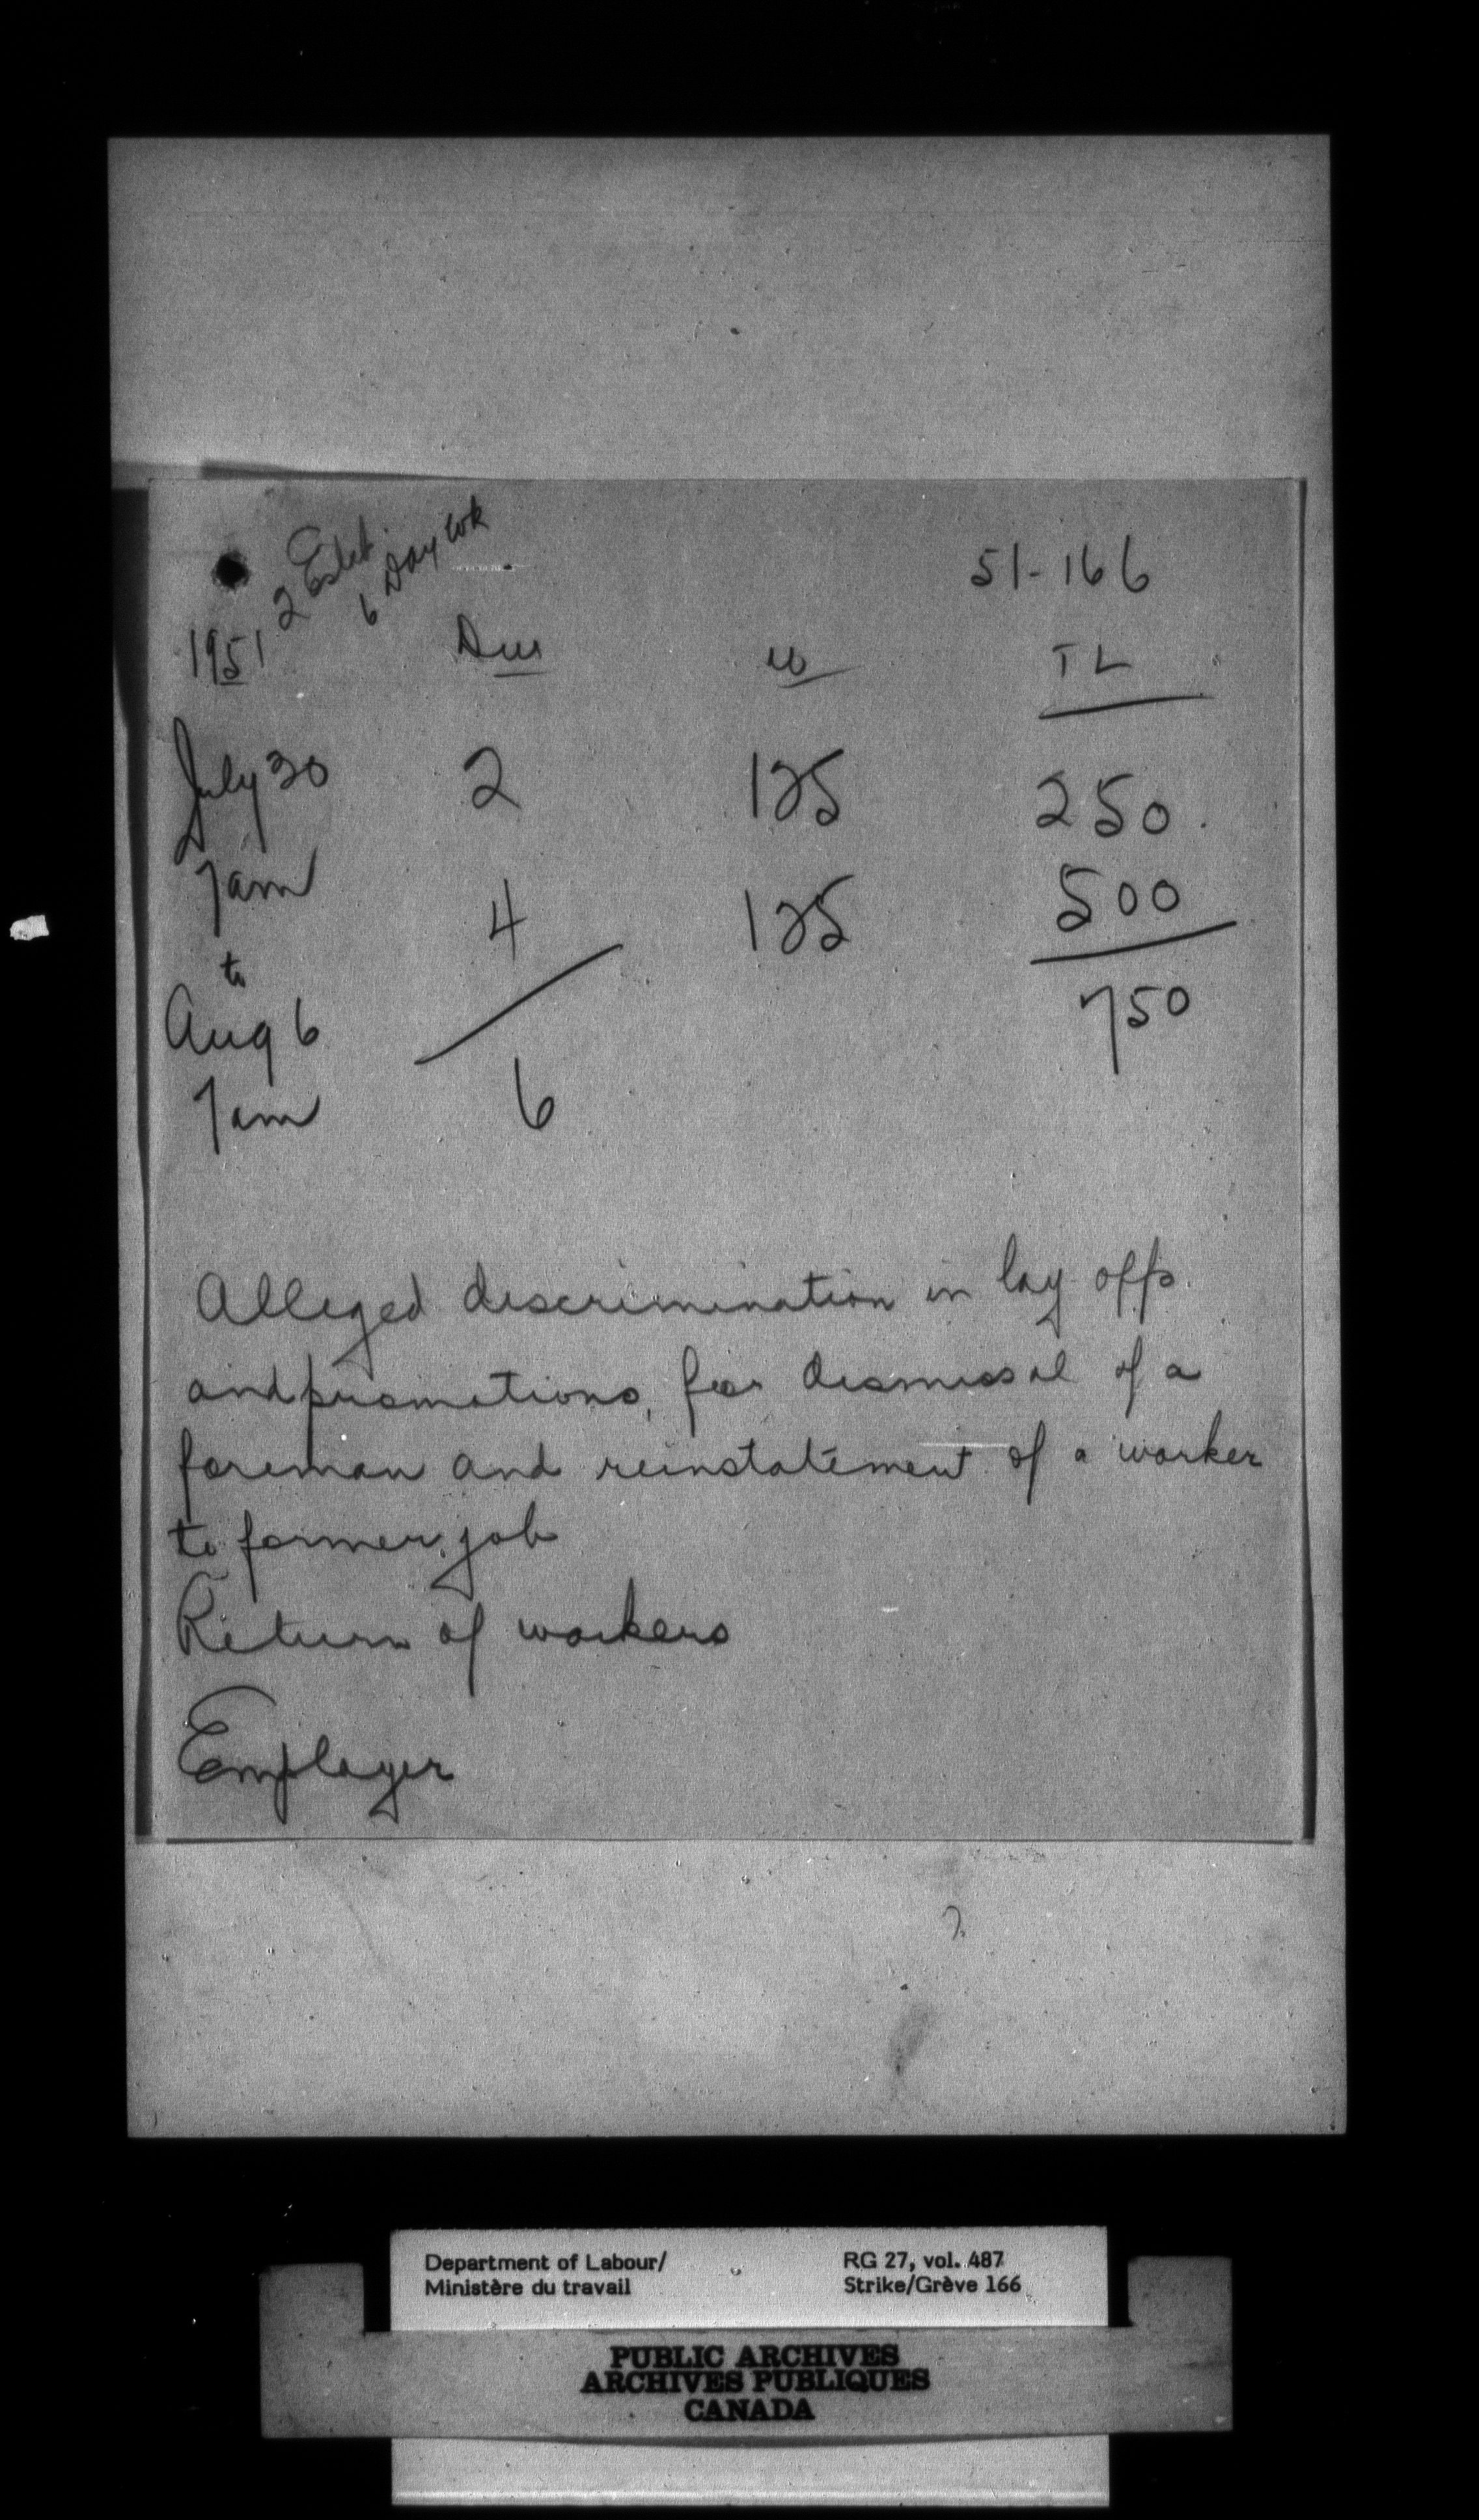 2 Estab.
6 Day wk
51-166
1951 Dur w TL
July 30 2 125 250.
7am
4 125 500
to
Aug 6 6 750
7am
Alleged discrimination in lay offs
and promotions, for dismissal of a
foreman and reinstatement of a worker
to former job
Return of workers
Employer
Department of Labour/
Ministère du travail
RG 27, vol. 487
Strike/Grève 166
PUBLIC ARCHIVES
ARCHIVES PUBLIQUES
CANADA